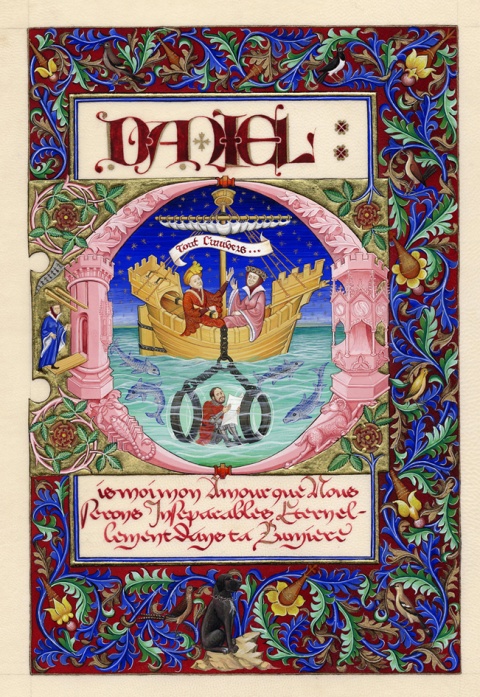 DANIEL
Tout Lunivers...
is moi mon Amour que Nous
Serons Inseparables Eternel-
lement dans ta Lumiere